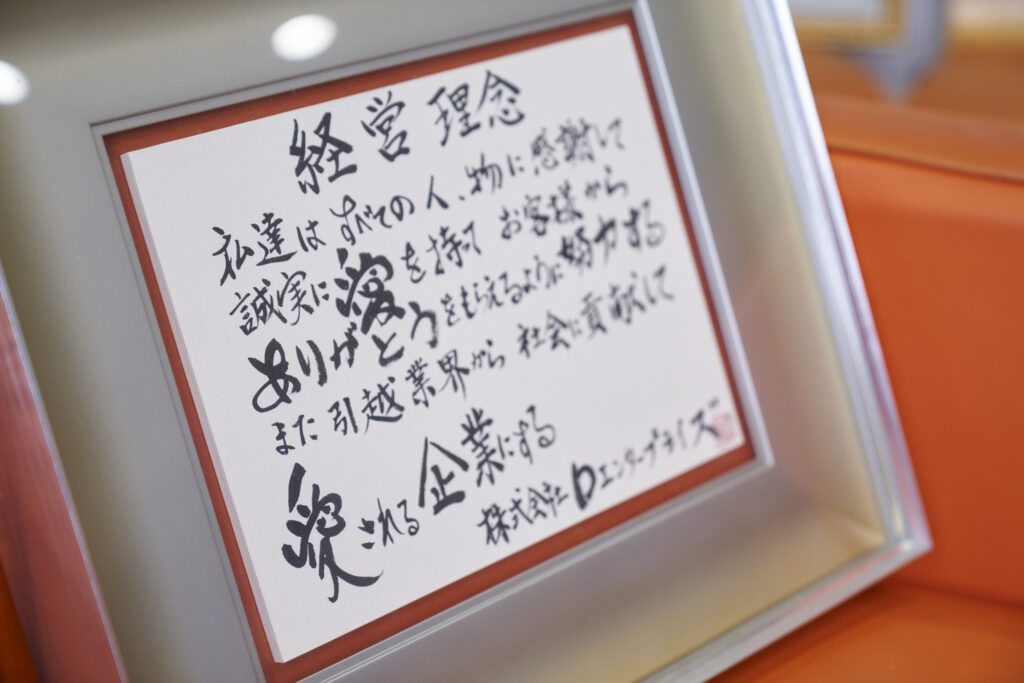 経営理念
私達はすべての人、物に感謝して
誠実に愛を持って お客様から
ありがとうをもらえるように努力する
また引越業界から 社会に貢献して
愛される企業にする
株式会社Dエンタープライズ